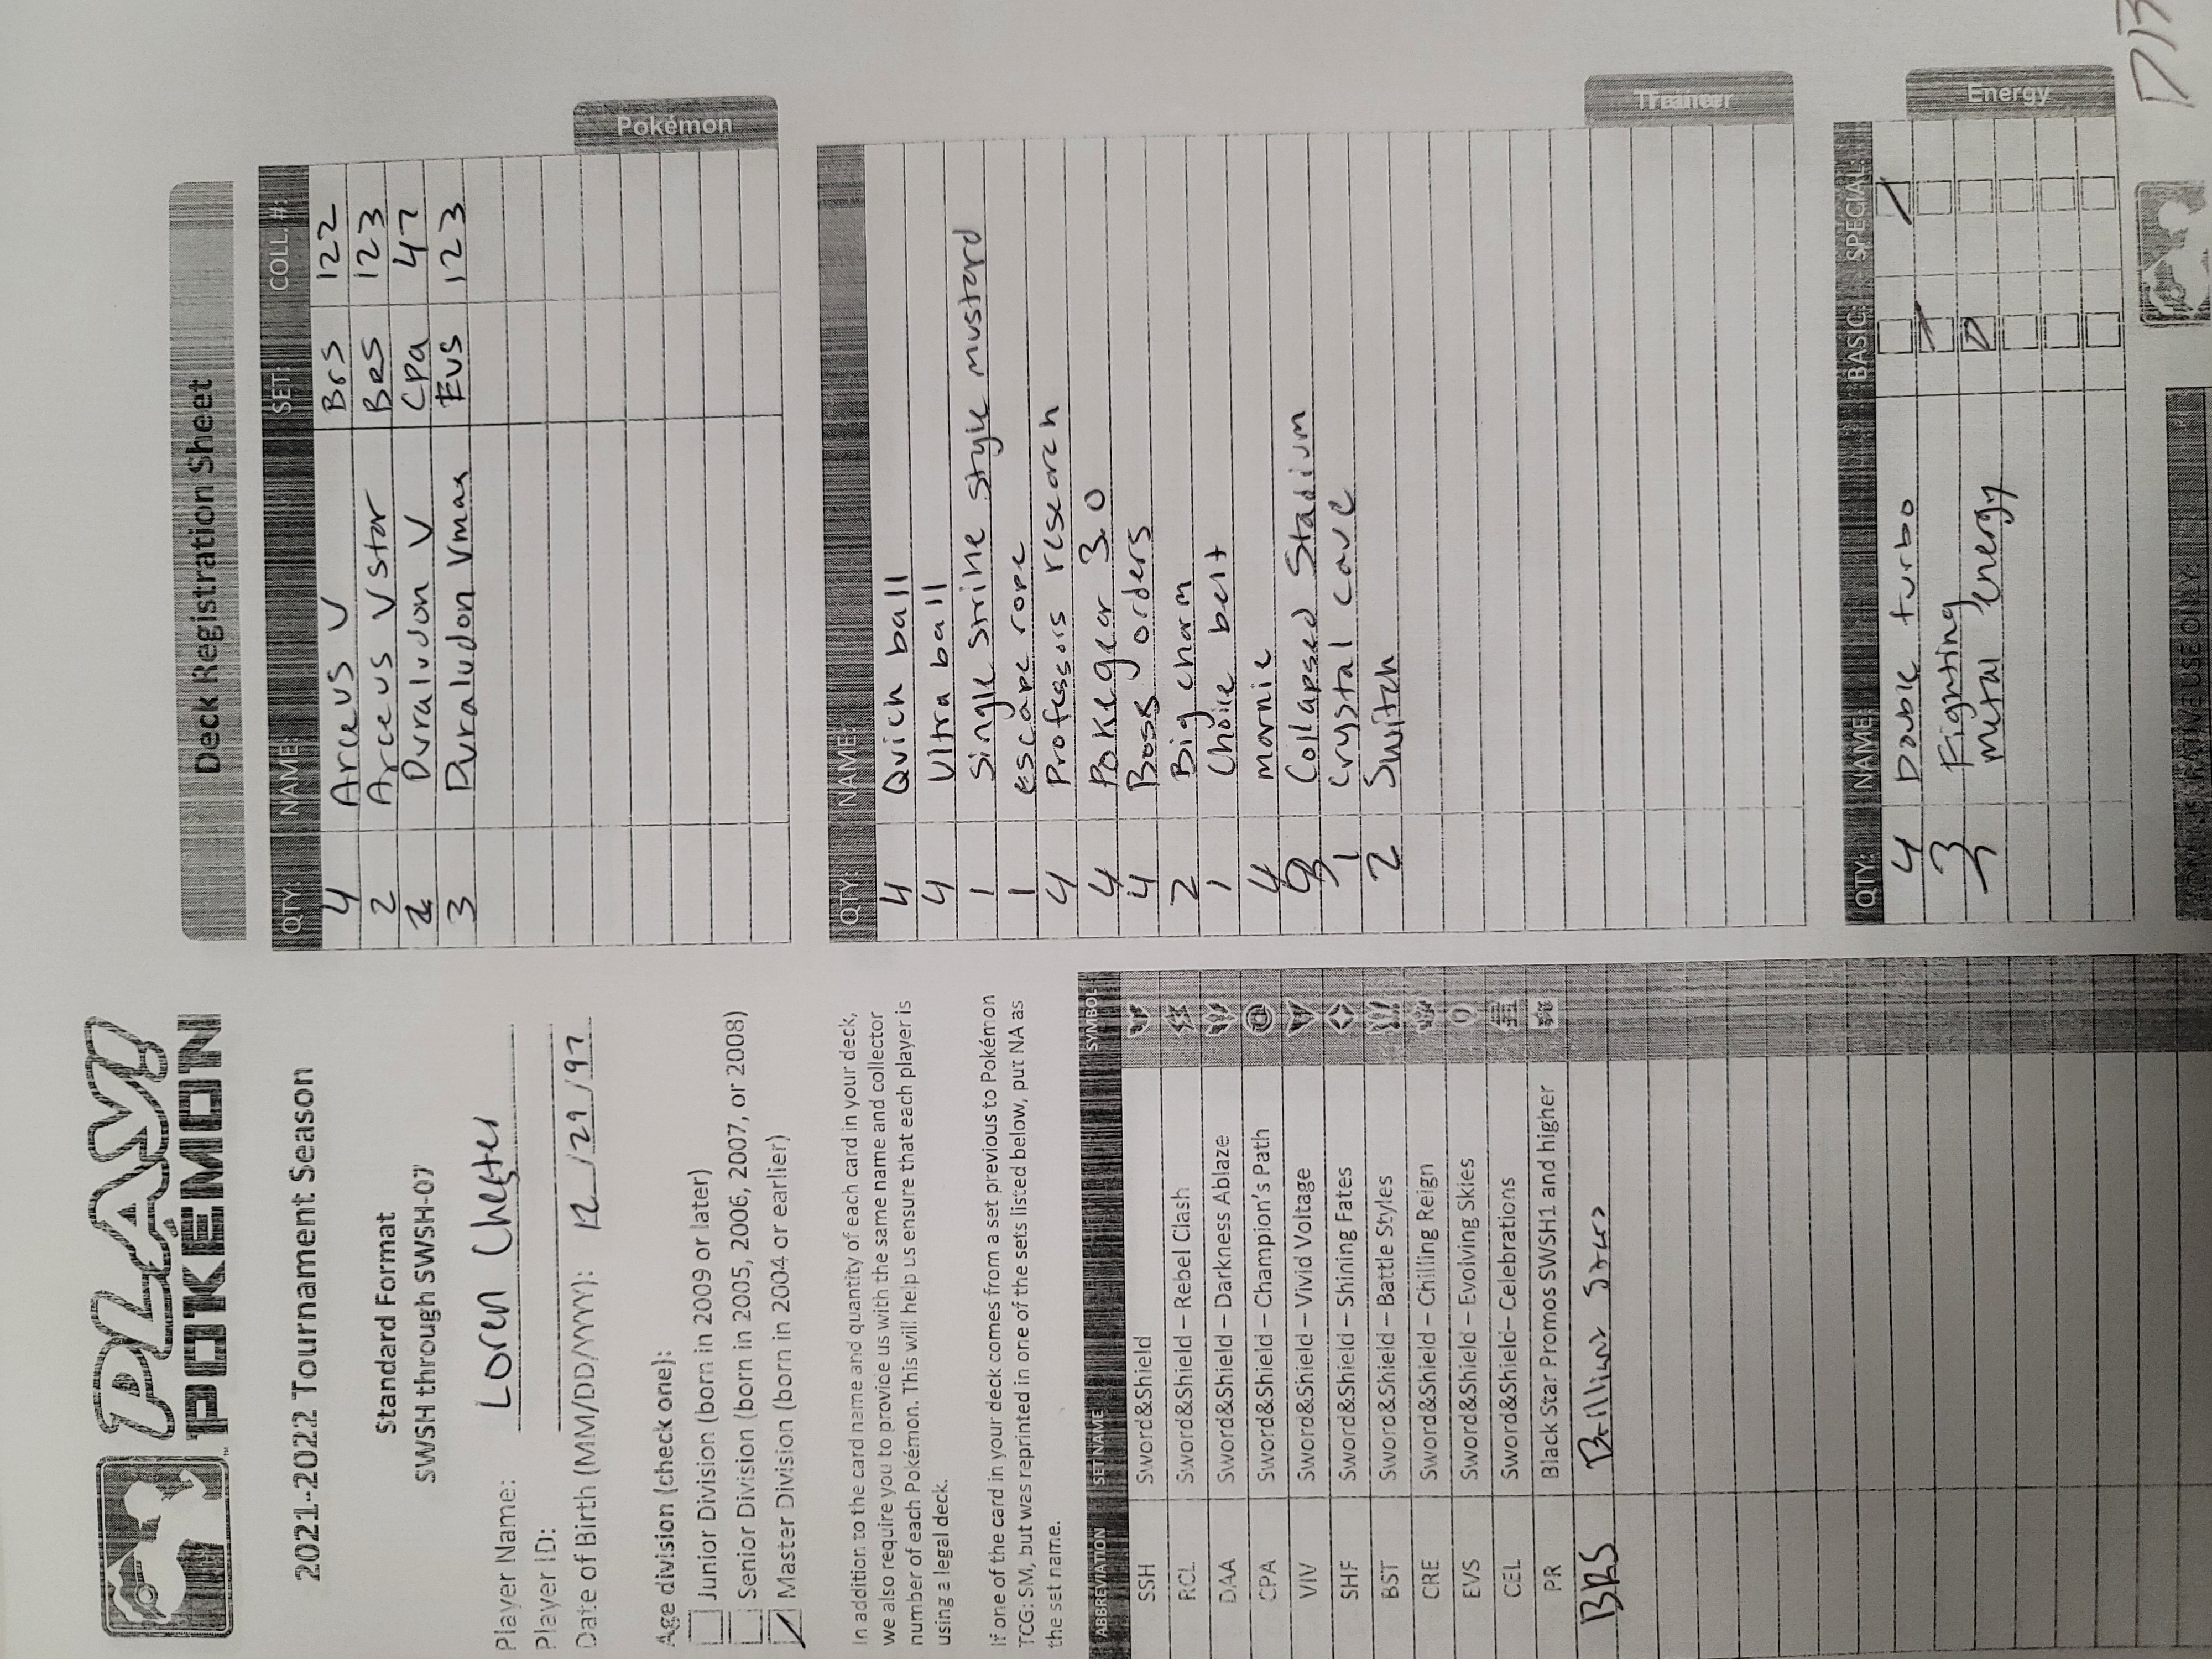 PLAY!
POKÉMON
2021-2022 Tournament Season
Standard Format
SWSH through SWSH-07
Player Name: Loren Chester
Player ID:
Date of Birth (MM/DD/YYYY): 12/29/97
Age division (check one):
Junior Division (born in 2009 or later)
Senior Division (born in 2005, 2006, 2007, or 2008)
Master Division (born in 2004 or earlier)
In addition to the card name and quantity of each card in your deck,
we also require you to provide us with the same name and collector
number of each Pokémon. This will help us ensure that each player is
using a legal deck.
If one of the card in your deck comes from a set previous to Pokémon
TCG: SM, but was reprinted in one of the sets listed below, put NA as
the set name.
ABBREVIATION SET NAME SYMBOL
SSH Sword&Shield
RCL Sword&Shield – Rebel Clash
DAA Sword&Shield – Darkness Ablaze
CPA Sword&Shield – Champion's Path
VIV Sword&Shield – Vivid Voltage
SHF Sword&Shield – Shining Fates
BST Sword&Shield – Battle Styles
CRE Sword&Shield – Chilling Reign
EVS Sword&Shield – Evolving Skies
CEL Sword&Shield– Celebrations
PR Black Star Promos SWSH1 and higher
BRS Brilliant Stars
Deck Registration Sheet
QTY: NAME: SET: COLL. #:
4 Arceus V BrS 122
2 Arceus Vstar BrS 123
Duraludon V Cpa 47
3 Duraludon Vmax EvS 123
Pokémon
QTY: NAME:
4 Quick ball
4 Ultra ball
1 Single Strike style mustard
1 escape rope
4 Professors research
4 Pokegear 3.0
4 Boss orders
2 Big charm
1 Choice belt
4 marnie
3 Collapsed Stadium
1 Crystal cave
2 Switch
Trainer
QTY: NAME: BASIC: SPECIAL:
4 Double turbo
3 Fighting
metal energy
Energy
ADMINISTRATIVE USE ONLY: